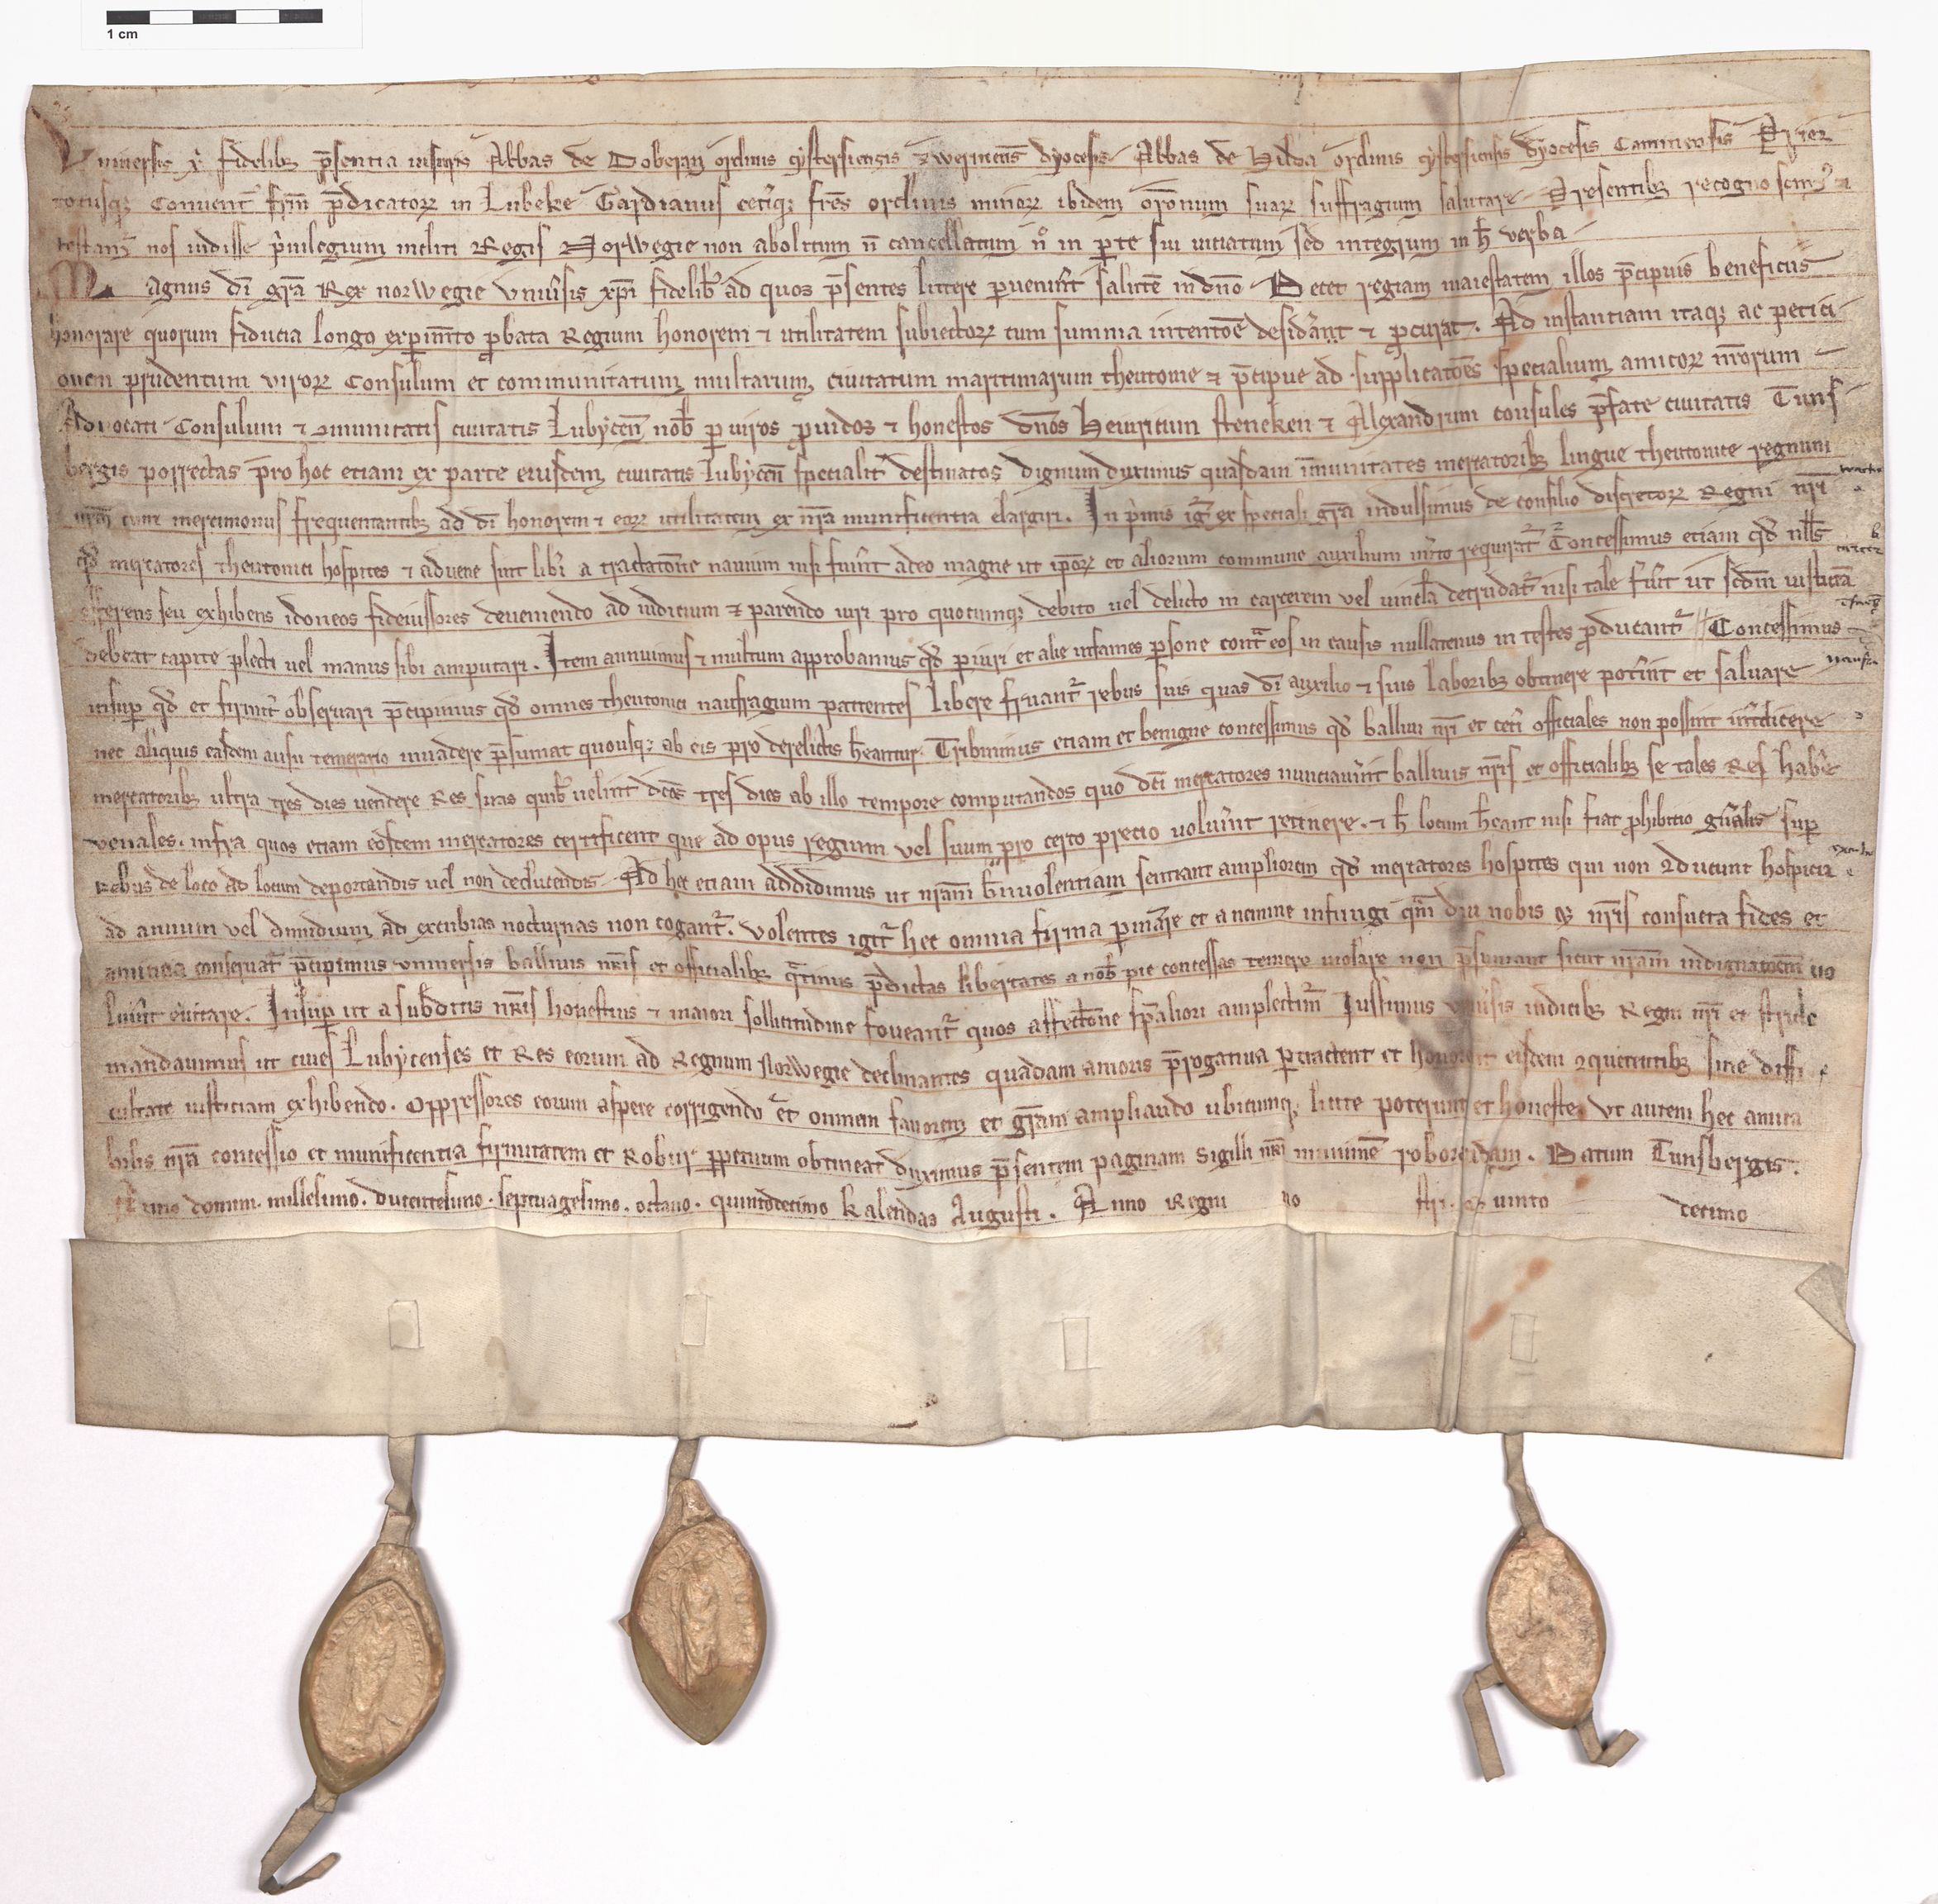 1 cm
Vniuersis xp̄i fidelibꝫ p̄sentia uisuris Abbas de Doberan ordinis cysterciensis Zwerinens̄ dyocesis Abbas de Hilda ordinis cysterciensis dyocesis Caminensis Prior
totusqꝫ Conuent᷒ fr̄m p̄dicatoꝝ in Lubeke Gardianus ceteriqꝫ fr̄es ordinis minoꝝ ibidem or̄onum suaꝝ suffragium salutare Presentibꝫ recognoscim᷒ ⁊
testam᷒ nos uidisse p̓uilegium incliti Regis Norwegie non abolitum n̄ cancellatum n̊ in ꝑte sui uiciatum sed integrum in h̄ verba
Magnus dī gr̄a Rex norwegie Vniu̓sis xp̄i fidelibꝫ ad quos p̄sentes littere ꝑuenīnt salutē in dn̄o Decet regiam maiestatem illos p̄cipuis beneficiis
honorare quorum fiducia longo exꝑim̄to ꝓbata Regium honorem ⁊ utilitatem subiectoꝝ cum summa intentōe desid̓ant ⁊ ꝓcurāt. Ad instantiam itaqꝫ ac petici
onem prudentum uiroꝝ Consulum et communitatum multarum ciuitatum maritimarum theutonie ⁊ p̄cipue ad supplicatōes specialium amicoꝝ nr̄orum
Aduocati Consulum ⁊ ꝯmunitatis ciuitatis Lubycen̄ nob̄ ꝑ uiros ꝓuidos ⁊ honestos dn̄os Heinricum steneken ⁊ Alexandrum consules p̄fate ciuitatis Tuns
bergis porrectas pro hoc etiam ex parte eiusdem ciuitatis Lubycen̄ specialit̓ destinatos dignum duximus quasdam īmunitates mercatoribꝫ lingue theutonice regnum
nr̄m cum mercimoniis frequentantibꝫ ad dī honorem ⁊ eoꝝ utilitatem ex nr̄a munificentia elargiri. In p̓mis ig̓ ex speciali gr̄a indulsimus de consilio discretoꝝ Regni nr̄i
qd̓ mercatores theutonici hospites ⁊ aduene sint lib̓i a tractatōne nauium nisi fu̓int adeo magne ut ip̄oꝝ et aliorum commune auxilium m̓ito requirat᷒ Concessimus etiam qd̓ null᷒s
offerens seu exhibens idoneos fideiussores deueniendo ad iudicium ⁊ parendo iuri pro quocunqꝫ debito uel delicto in carcerem uel uincl̄a detrudat᷒ nisi tale fu̓it ut scd̄m iusticiā
debeat capite plecti uel manus sibi amputari. Item annuimus ⁊ multum approbamus qd̓ ꝑiuri et alie infames ꝑsone cont̄ eos in causis nullatenus in testes ꝓducant᷒ Concessimus
insuꝑ qd̓ et firmit̓ obseruari p̄cipimus qd̓ omnes theutonici naufragium pacientes libere fruant᷒ rebus suis quas dī auxilio ⁊ suis laboribꝫ obtinere pot̓int et saluare
nec aliquis easdem ausu temerario inuadere p̄sumat quousqꝫ ab eis pro derelictis h̄eantur. Tribuimus etiam et benigne concessimus qd̓ balliui nr̄i et cet̓i officiales non possint int̓dicere
mercatoribꝫ ultra tres dies uendere Res suas quibꝫ uelint dc̄os tres dies ab illo tempore computandos quo dc̄i mercatores nunciau̓int balliuis nr̄is et officialibꝫ se tales Res hab̓e
venales. infra quos etiam eosdem mercatores certificent que ad opus regium vel suum pro certo precio uolu̓int retinere. ⁊ h̄ locum h̄eant nisi fiat ꝓhibitio gn̄alis suꝑ
Rebus de loco ad locum deportandis uel non deducendis. Ad hec etiam addidimus ut nr̄am beniuolentiam sentiant ampliorem qd̓ mercatores hospites qui non ꝯducunt hospicia
ad annum vel dimidium ad excubias nocturnas non cogant᷒. Volentes igit᷒ hec omnia firma ꝑman̓e et a nemine infringi qm̄ diu nobis ⁊ nr̄is consueta fides et
amicicia conseruat᷒ p̄cipimus uniuersis balliuis nr̄is et officialibꝫ q̄tinus p̄dictas libertates a nob̄ pie concessas temere uiolare non p̄sumant sicut nr̄am indignatōem uo
lu̓int euitare. Insuꝑ ut a subditis nr̄is honestius ⁊ maiori sollicitudine foueant᷒ quos affectōne sp̄aliori amplectim᷒ Iussimus vniu̓sis iudicibꝫ Regni nr̄i et stricte
mandauimus ut ciues Lubycenses et Res eorum ad Regnum Norwegie declinantes quadam amoris p̄rogatiua ꝑtractent et honorent eisdem ꝯquerentibꝫ sine diffi
cultate iusticiam exhibendo. Oppressores eorum aspere corrigendo et omnem fauorem et gr̄am ampliando ubicunqꝫ licite poterunt et honeste Vt autem hec amica
bilis nr̄a concessio et munificentia firmitatem et Robur ꝑpetuum obtineat duximus p̄sentem paginam Sigilli nr̄i munimīe roborandam. Datum Tunsbergis.
Anno domini. millesimo. ducentesimo. septuagesimo. octauo. quintodecimo Kalendas Augusti. Anno Regni no stri. Quinto decimo